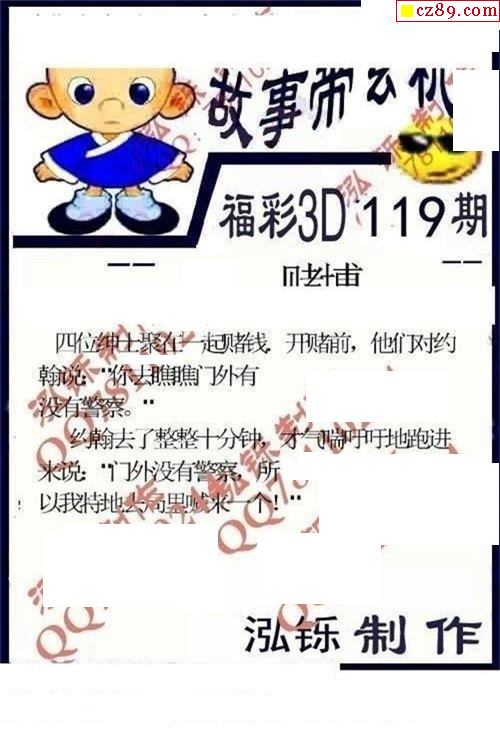 cz89.com
故事带玄机
福彩3D 119期
四位绅士聚在一起赌钱，开赌前，他们对约
翰说："你去瞧瞧门外有
没有警察。"
约翰去了整整十分钟，才气喘吁吁地跑进
来说："门外没有警察，所
以我特地去局里喊来一个！"
泓铄制作